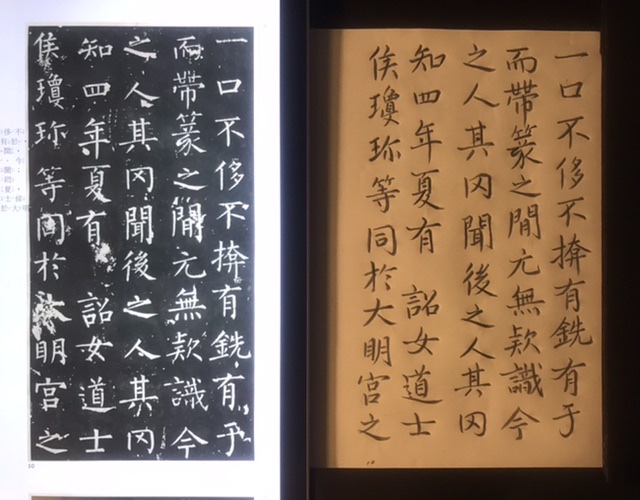 一口不侈不揜有銑有于
而帶篆之閒亢無欵識今
之人其罔聞後之人其罔
知四年夏有　詔女道士
侯瓊珎等同於大明宮之
一口不侈不揜有銑有于
而帶篆之閒亢無欵識今
之人其罔聞後之人其罔
知四年夏有　詔女道士
侯瓊珎等同於大明宮之